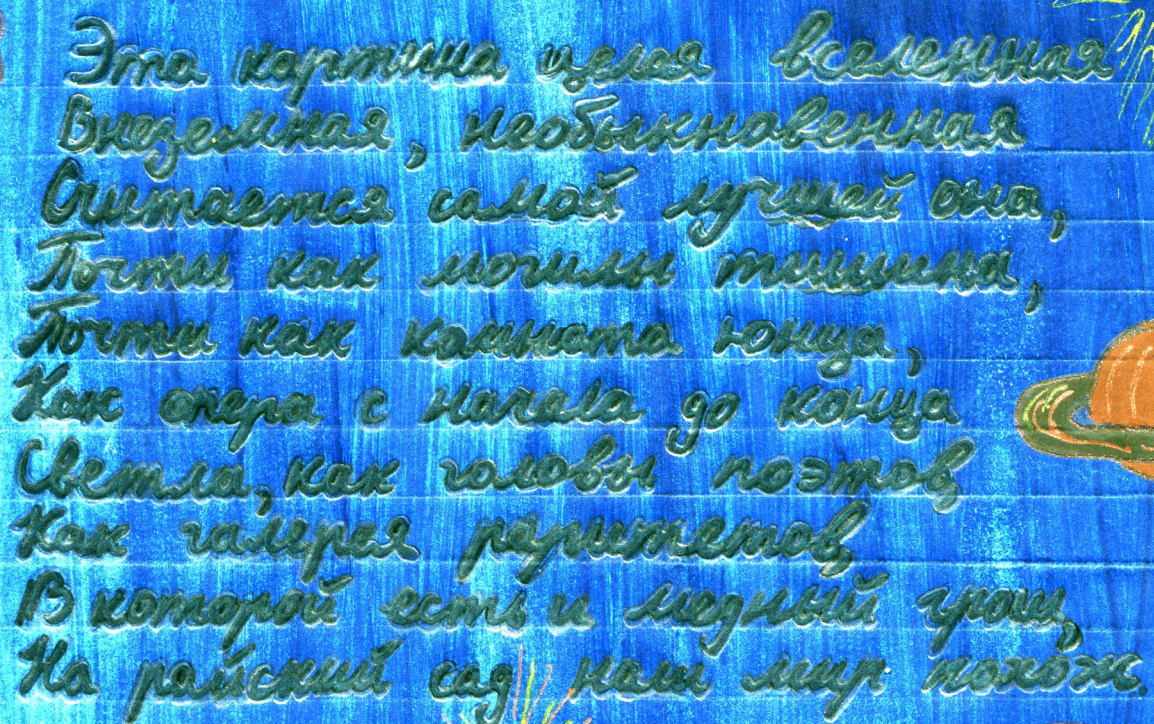 Эта картина целая вселенная
Внеземная, необыкновенная
Считается самой лучшей она,
Почти как могилы тишина,
Почти как комната юнца,
Как опера с начала до конца
Светла, как головы поэтов,
Как галерея раритетов,
В которой есть и медный грош,
На райский сад наш мир похож.